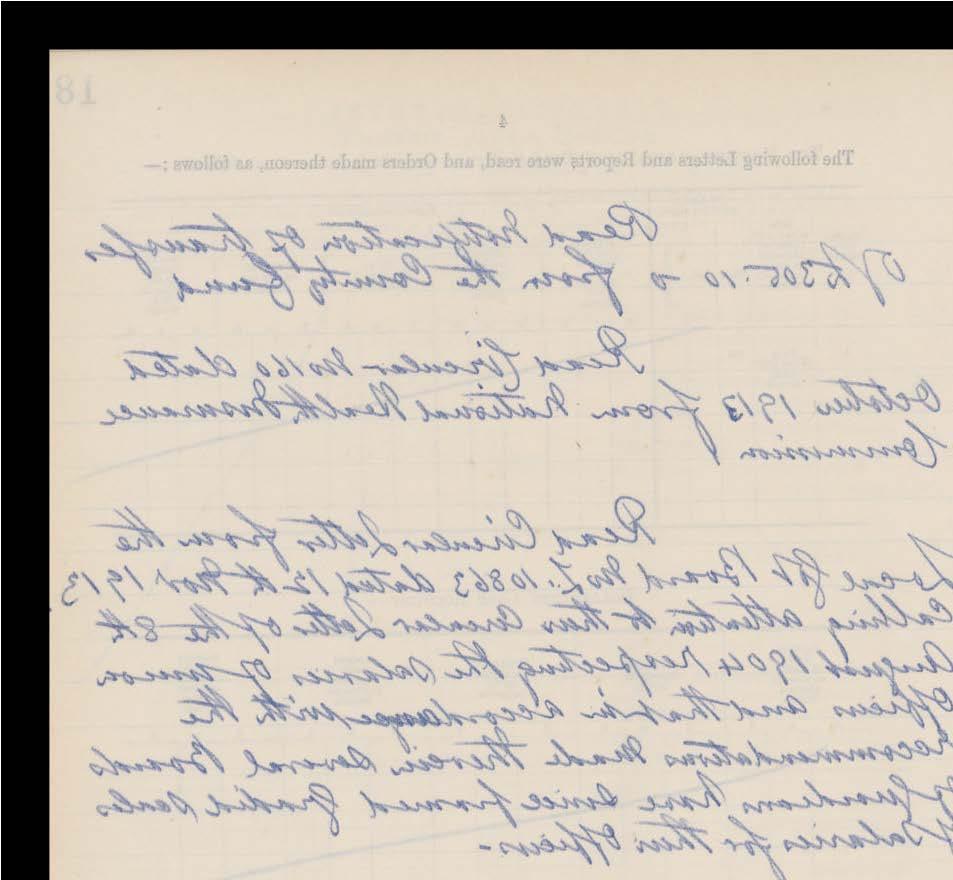 18
4
The following Letters and Reports were read, and Orders made thereon, as follows :—
Read Notification of transfer
Of £305.10.0 from the County Fund
Read Circular No 160 dated
October 1913 from National Health Insurance
Commission
Read Circular Letter from the
Local Govt Board No Z.10863 dated 12th Nov 1913
Calling attention to their Circular Letter of the 8th
August 1904 respecting the Salaries of Union
Officers and that in accordance with the
Recommendations made therein several Boards
of Guardians have since framed Graded Scales
of Salaries for their Officers -